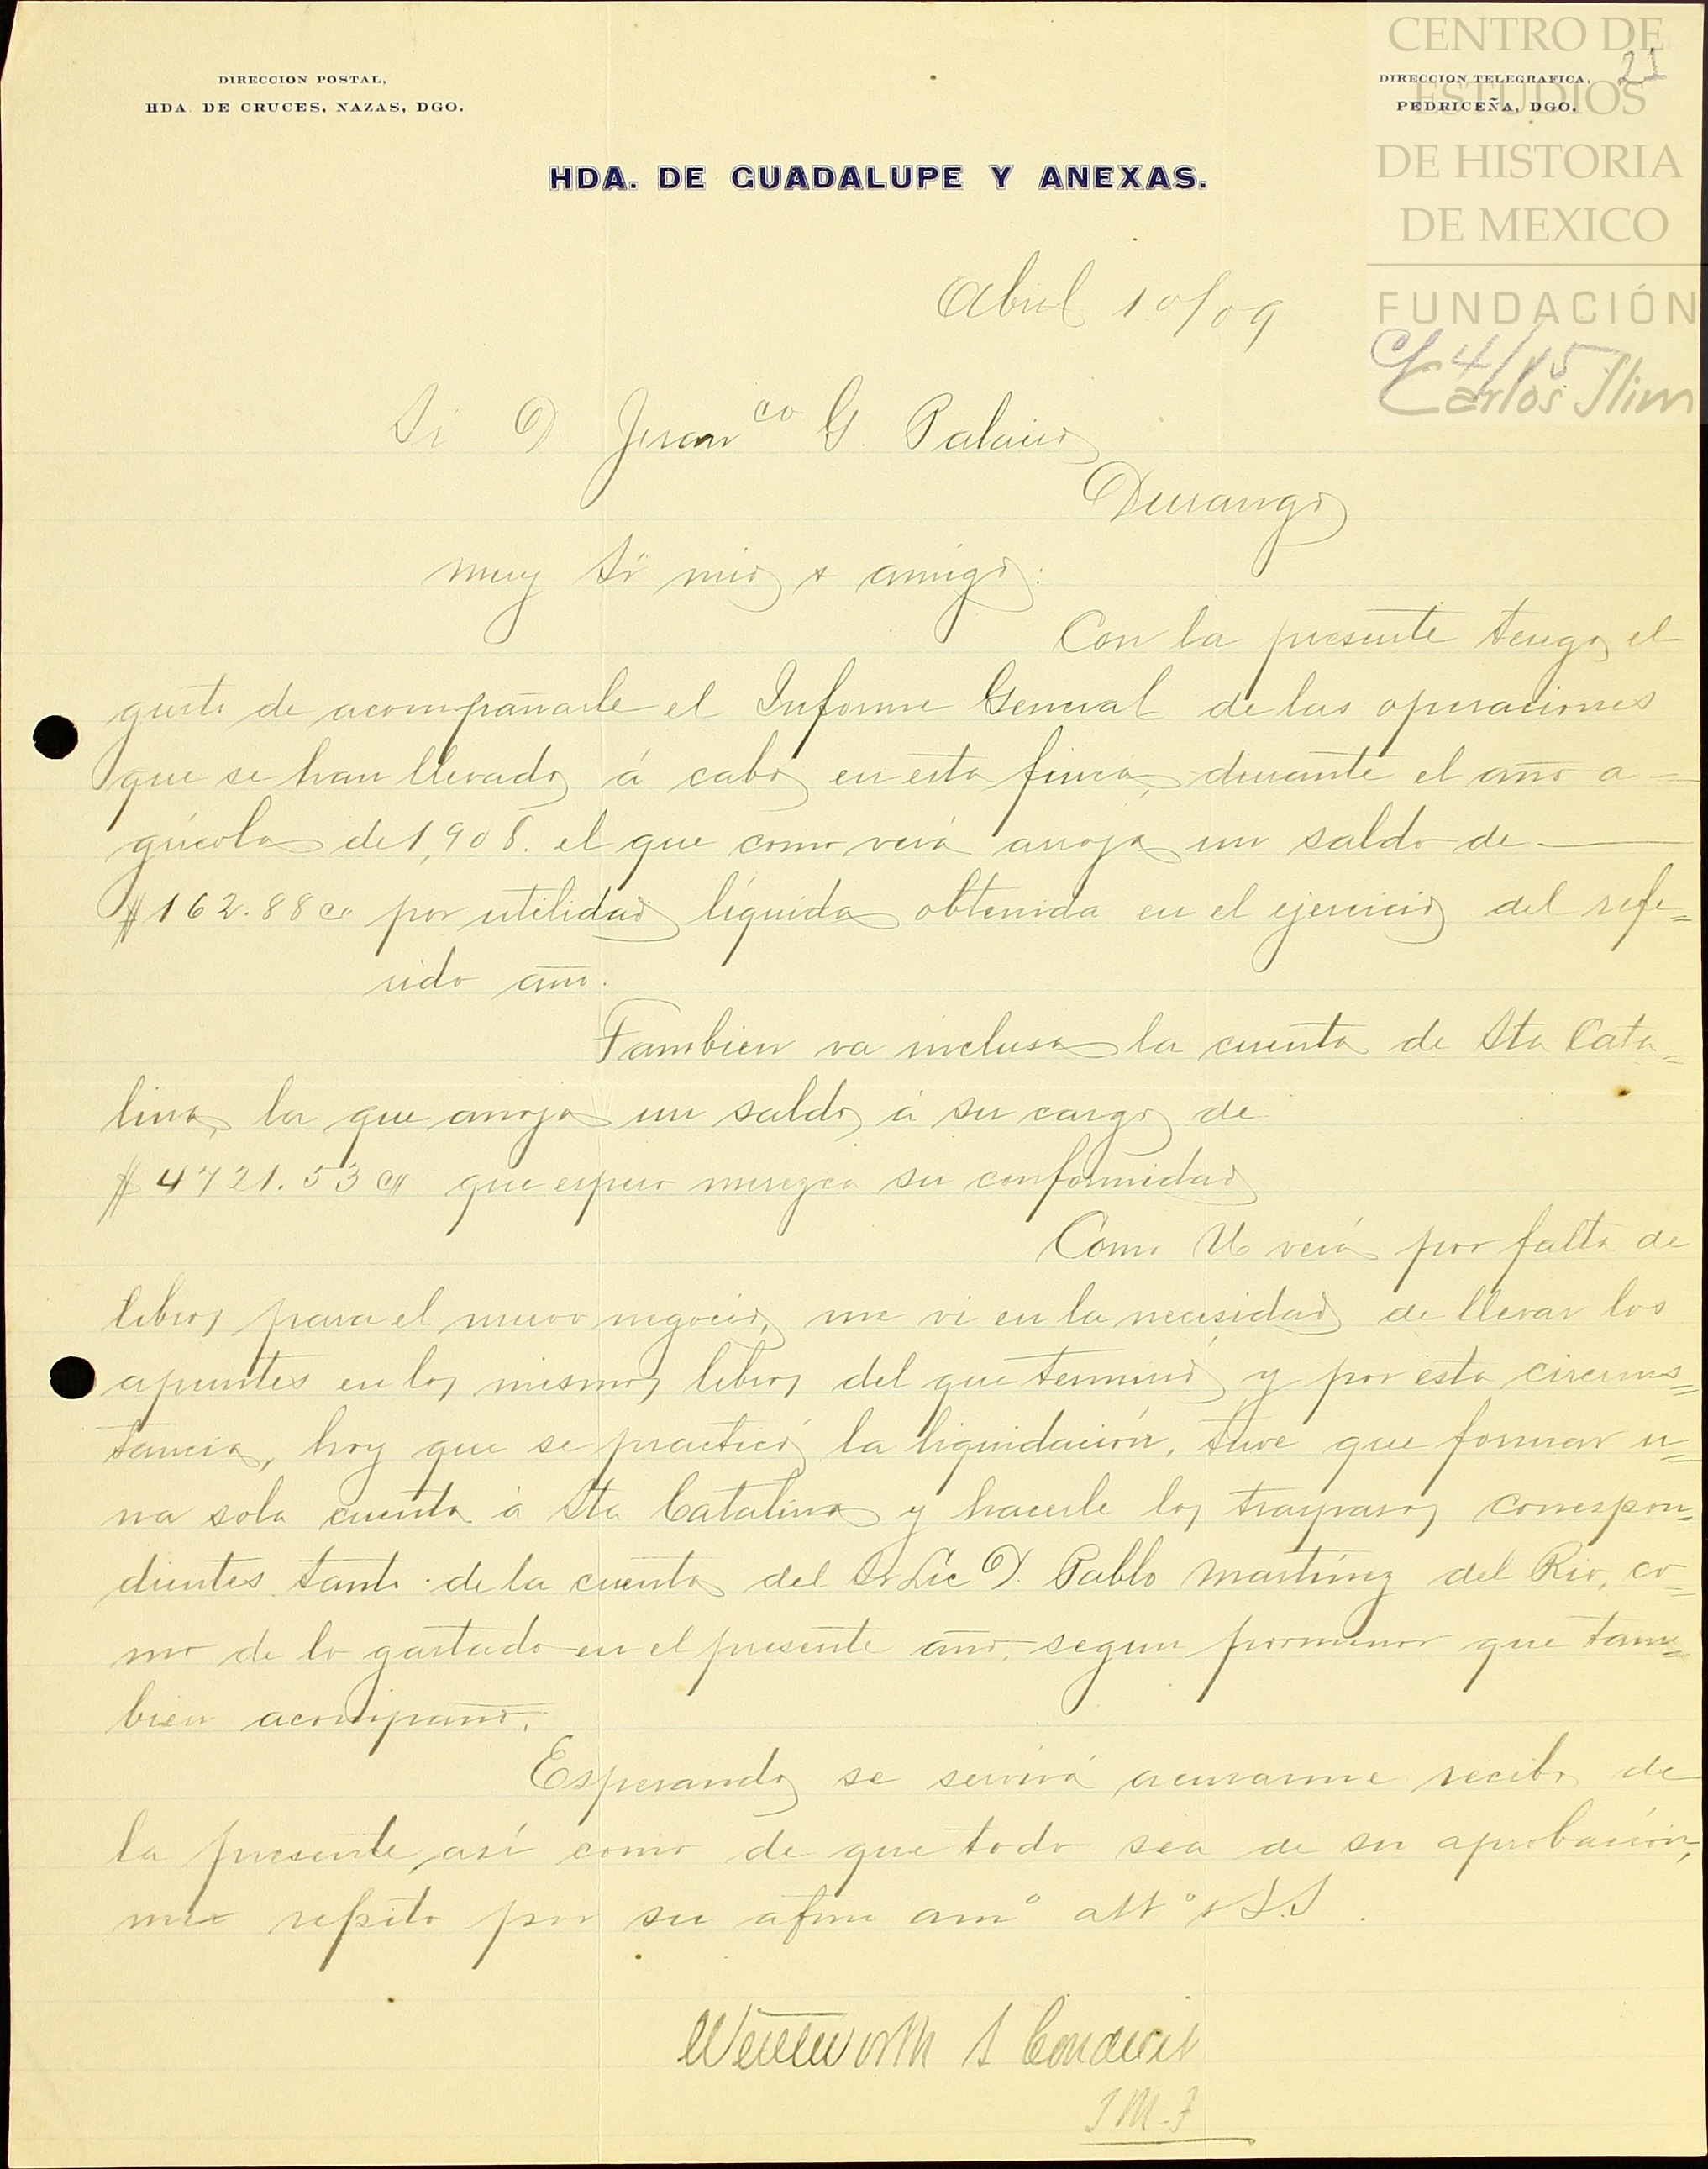 DIRECCION POSTAL,
HDA. DE CRUCES, NAZAS, DGO.
DIRECCION TELEGRAFICA.
PEDRICEÑA, DGO.
21
CENTRO DE
ESTUDIOS
DE HISTORIA
DE MEXICO
FUNDACIÓN
Carlos Slim
HDA. DE GUADALUPE Y ANEXAS.
Abril 10/09
C/ 4/15
Sr D Juan co G. Palacio
Durango
muy Sr mio y amigo:
Con la presente tengo el
gusto de acompañarle el Informe General de las operaciones
que se han llevado á cabo en esta finca, durante el año a-
grícola de 1,908. el que como verá arroja un saldo de
$162.88 por utilidad líquida obtenida en el ejercicio del refe=
rido año.
Tambien va inclusa la cuenta de Sta Cata=
lina, la que arroja un saldo á su cargo de
$4721.53 que espero merezca su conformidad
Como U verá por falta de
libros para el nuevo negocio, me vi en la necesidad de llevar los
apuntes en los mismos libros del que terminó y por esta circuns=
tancia, hoy que se practicó la liquidación, tuve que formar u=
na sola cuenta á Sta Catalina y hacerle los traspasos correspon=
dientes tanto de la cuenta del Sr Lic D. Pablo Martínez del Rio, co=
mo de lo gastado en el presente año, segun pormenor que tam=
bien acompaño.
Esperando se servirá acusarme recibo de
la presente, así como de que todo sea de su aprobación,
me repito por su afmo amº attº y S.S.
Wentworth S Conduit